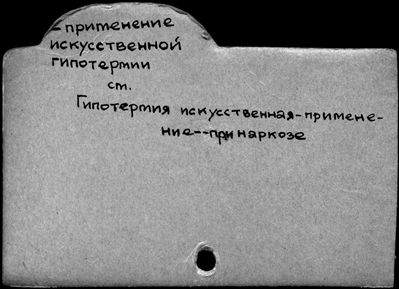 – применение
искусственной
гипотермии
ст.
Гипотермия искусственная-примене-
ние--при наркозе